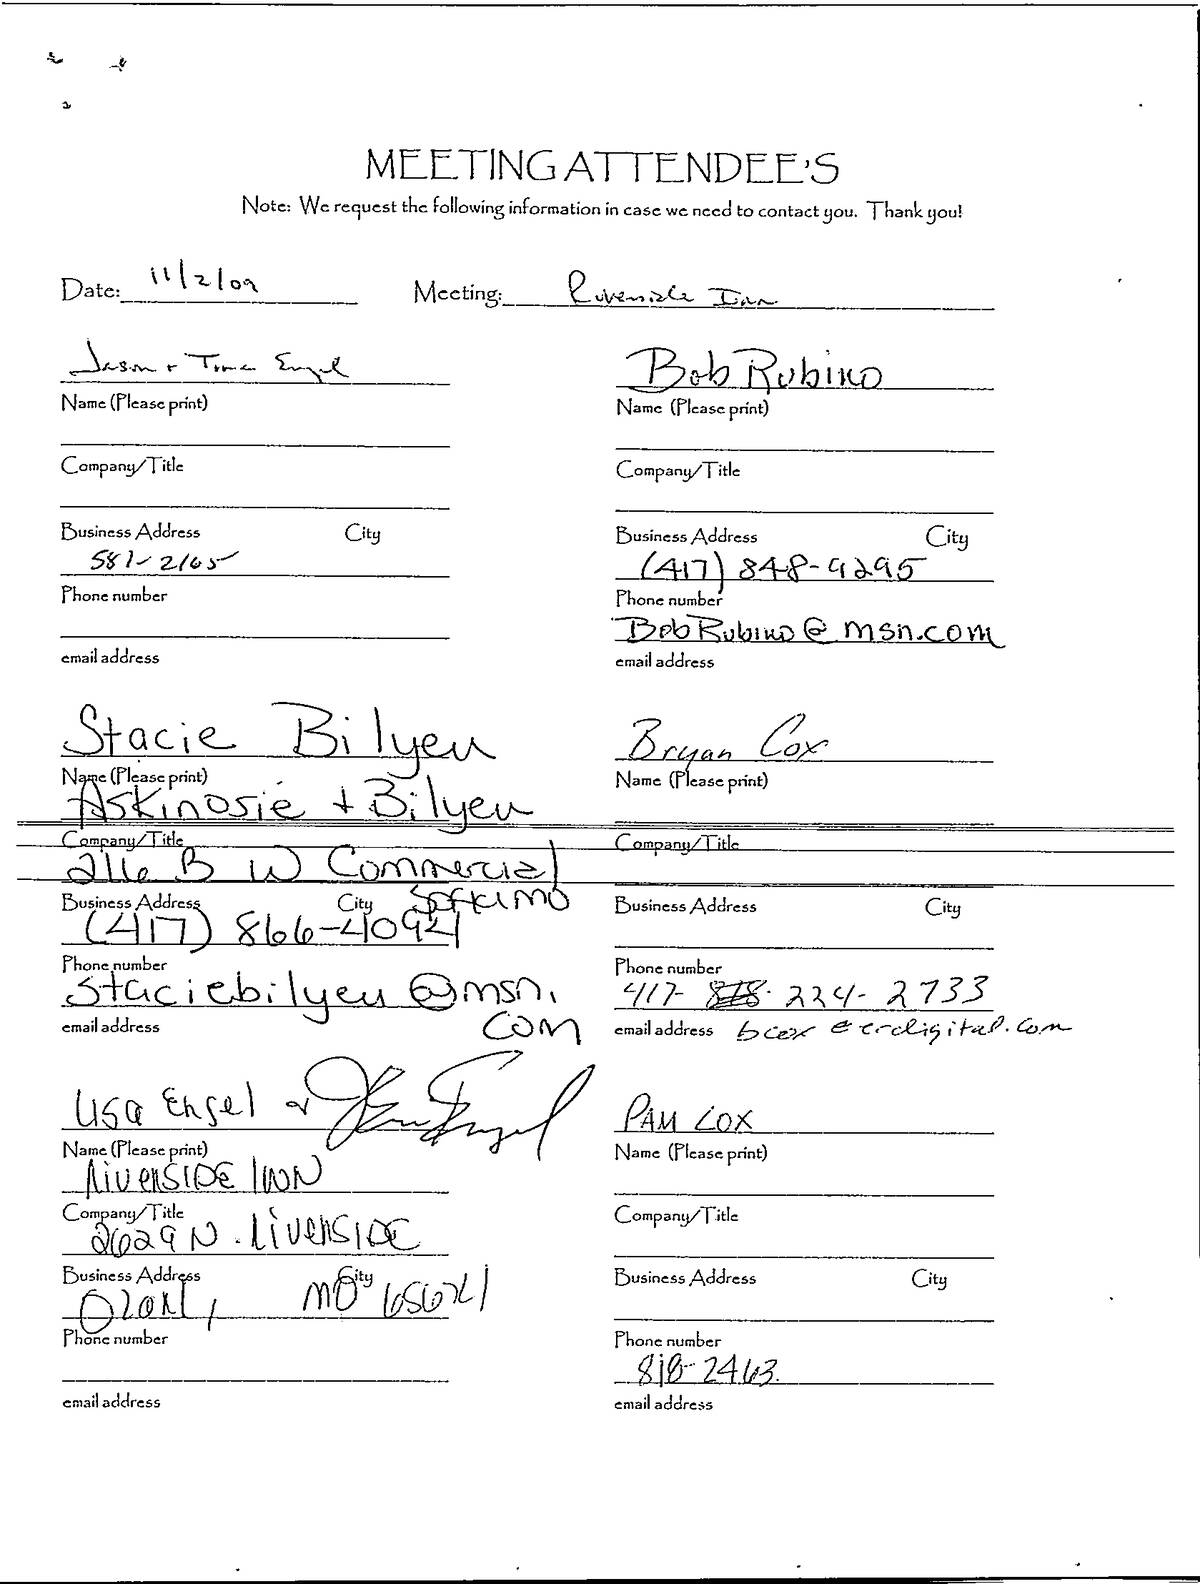 MEETING ATTENDEE'S
Note: We request the following information in case we need to contact you. Thank you!
Date: 11/2/09 Meeting: Riverside Inn
Jason + Engel
Name (Please print)
Company/Title
Business Address City
581-2165
Phone number
email address
Bob Rubino
Name (Please print)
Company/Title
Business Address City
(417) 848-9295
Phone number
BobRubino@msn.com
email address
Stacie Bilyeu
Name (Please print)
Askinosie + Bilyeu
Company/Title
216 B W Commercial
Business Address City Spfld MO
(417) 866-4094
Phone number
staciebilyeu@msn.
email address com
Bryan Cox
Name (Please print)
Company/Title
Business Address City
Phone number
417- 224-2733
email address bcox@ccrdigital.com
Lisa Engel &
Name (Please print)
RIVERSIDE INN
Company/Title
2629 N. RIVERSIDE
Business Address City
Ozark, MO 65721
Phone number
email address
PAM COX
Name (Please print)
Company/Title
Business Address City
Phone number
818-2463
email address